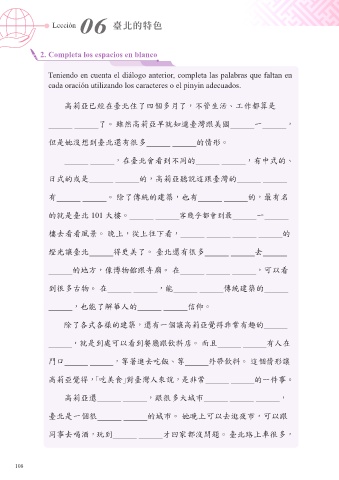 Lección 06 臺北的特色
2. Completa los espacios en blanco
Teniendo en cuenta el diálogo anterior, completa las palabras que faltan en
cada oración utilizando los caracteres o el pinyin adecuados.
高莉亞已經在臺北住了四個多月了，不管生活、工作都算是
______ ______了。雖然高莉亞早就知道臺灣跟美國______一______，
但是她沒想到臺北還有很多______ ______的情形。
______ ______，在臺北會看到不同的______ ______，有中式的、
日式的或是______ ______的，高莉亞聽說這跟臺灣的____________
有______ ______。除了傳統的建築，也有______ ______的，最有名
的就是臺北 101 大樓。______ ______客幾乎都會到最______一______
樓去看看風景。晚上，從上往下看，______ ______ ______ ______的
燈光讓臺北______得更美了。臺北還有很多______ ______去______
______的地方，像博物館跟寺廟。在______ ______ ______，可以看
到很多古物。在______ ______，能______ ______傳統建築的______
______，也能了解華人的______ ______信仰。
除了各式各樣的建築，還有一個讓高莉亞覺得非常有趣的______
______，就是到處可以看到餐廳跟飲料店。而且______ ______有人在
門口______ ______，等著進去吃飯、等______外帶飲料。這個情形讓
高莉亞覺得，「吃美食」對臺灣人來說，是非常______ ______的一件事。
高莉亞還______ ______，跟很多大城市______ ______ ______，
臺北是一個很______ ______的城市。她晚上可以去逛夜市，可以跟
同事去喝酒，玩到______ ______才回家都沒問題。臺北路上車很多，
108